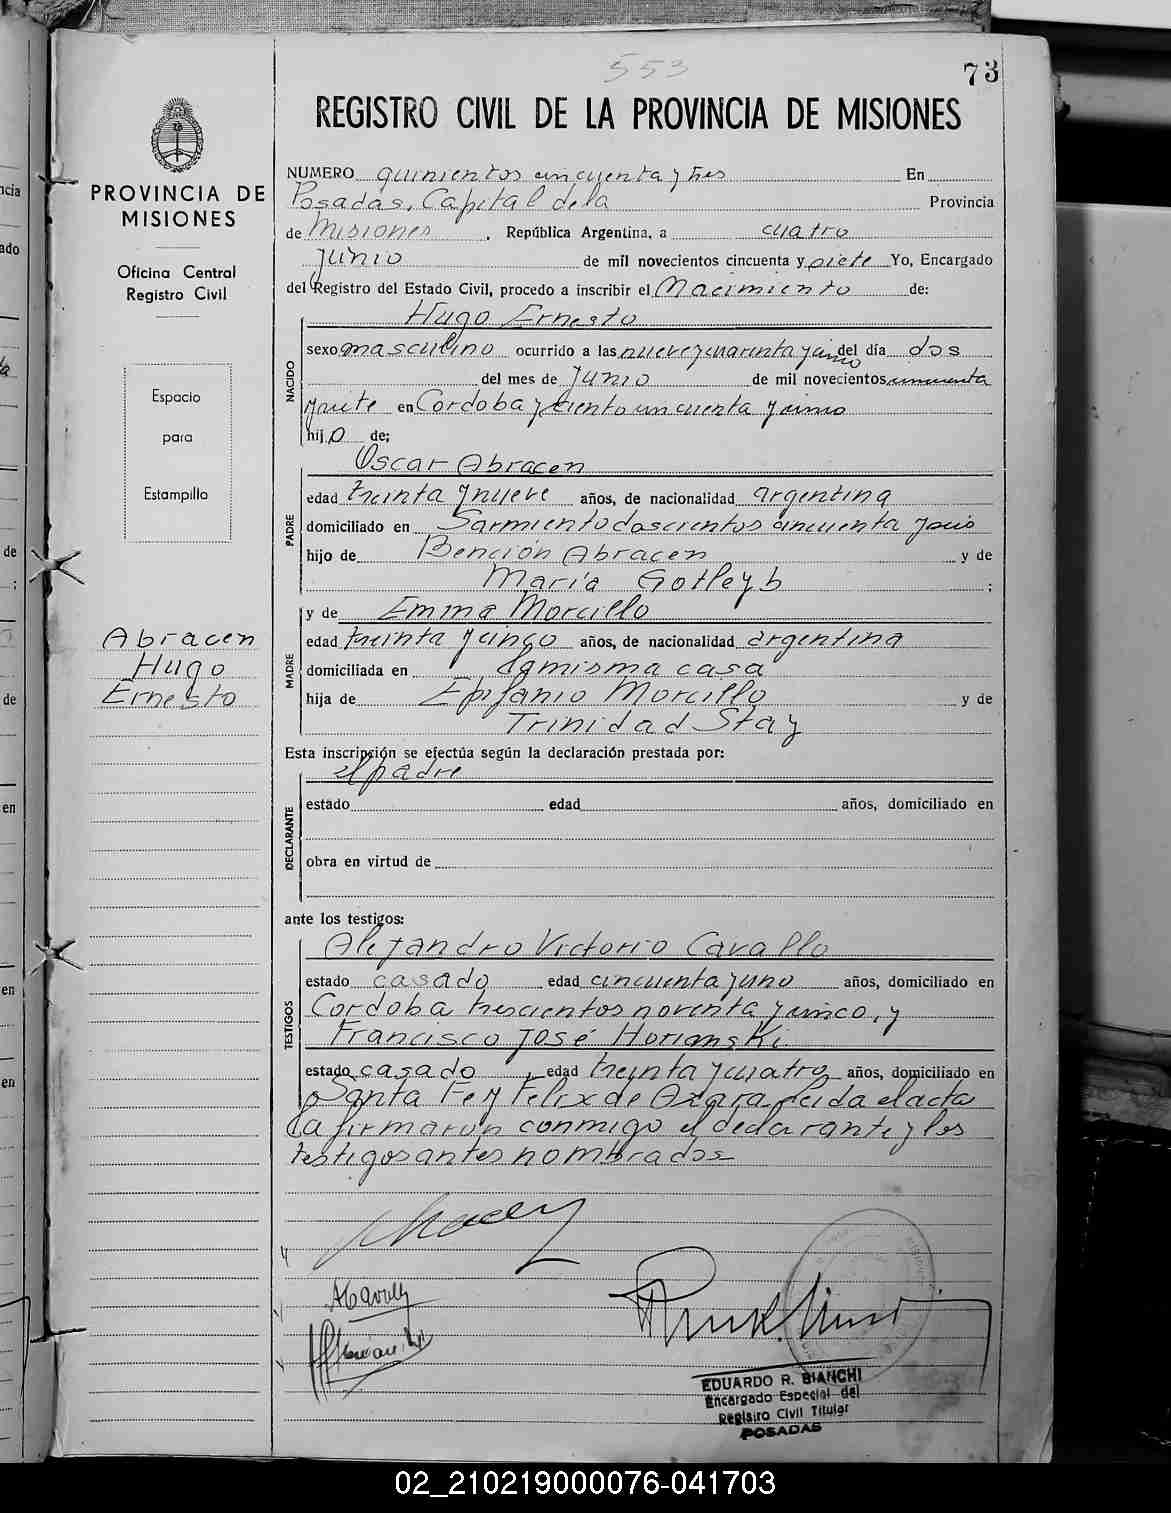 553
73
REGISTRO CIVIL DE LA PROVINCIA DE MISIONES
PROVINCIA DE
MISIONES
Oficina Central
Registro Civil
Espacio
para
Estampilla
Abracen
Hugo
Ernesto
NUMERO quinientos cincuenta y tres En
Posadas, Capital de la Provincia
de Misiones, República Argentina, a cuatro
Junio de mil novecientos cincuenta y siete Yo, Encargado
del Registro del Estado Civil, procedo a inscribir el Nacimiento de:
Hugo Ernesto
NACIDO
sexo masculino ocurrido a las nueve y cuarenta y cinco del día dos
del mes de Junio de mil novecientos cincuenta
y siete en Cordoba y ciento cincuenta y cinco
hijo de;
Oscar Abracen
PADRE
edad treinta y nueve años, de nacionalidad argentina
domiciliado en Sarmiento doscientos cincuenta y seis
hijo de Bención Abracen y de
Maria Gotleyb ;
y de Emma Morcillo
MADRE
edad treinta y cinco años, de nacionalidad argentina
domiciliada en la misma casa
hija de Epifanio Morcillo y de
Trinidad Stay
Esta inscripción se efectúa según la declaración prestada por:
el padre
DECLARANTE
estado edad años, domiciliado en
obra en virtud de
ante los testigos:
Alejandro Victorio Cavallo
TESTIGOS
estado casado edad cincuenta y uno años, domiciliado en
Cordoba trescientos noventa y cinco, y
Francisco José Horianski
estado casado, edad treinta y cuatro años, domiciliado en
Santa Fe y Felix de Azara. Leida el acta
la firmaron conmigo el declarante y los
testigos antes nombrados
EDUARDO R. BIANCHI
Encargado Especial del
Registro Civil Titular
POSADAS
02_210219000076-041703